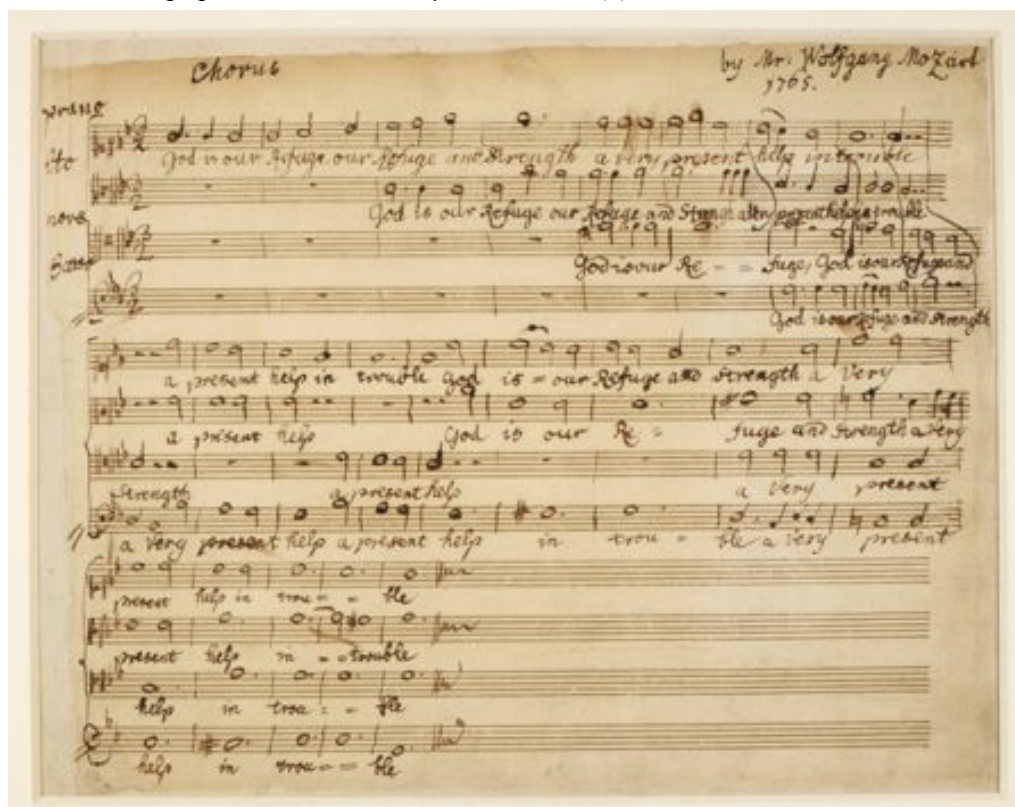 Chorus
by Mr. Wolfgang Mozart
1765.
prano
lto
God is our Refuge our Refuge and Strength a very present help in trouble
nore
God is our Refuge our Refuge and Strength a very present help in trouble
Basso
God is our Re - - fuge, God is our Refuge and
God is our Refuge and Strength
a present help in trouble God is = our Refuge and Strength a Very
a present help God is our Re = fuge and Strength a very
Strength a present help a Very present
a Very present help a present help in trou = ble a very present
present help in trou - - ble
present help in - - trouble
help in trou : - ble
help in trou - = ble